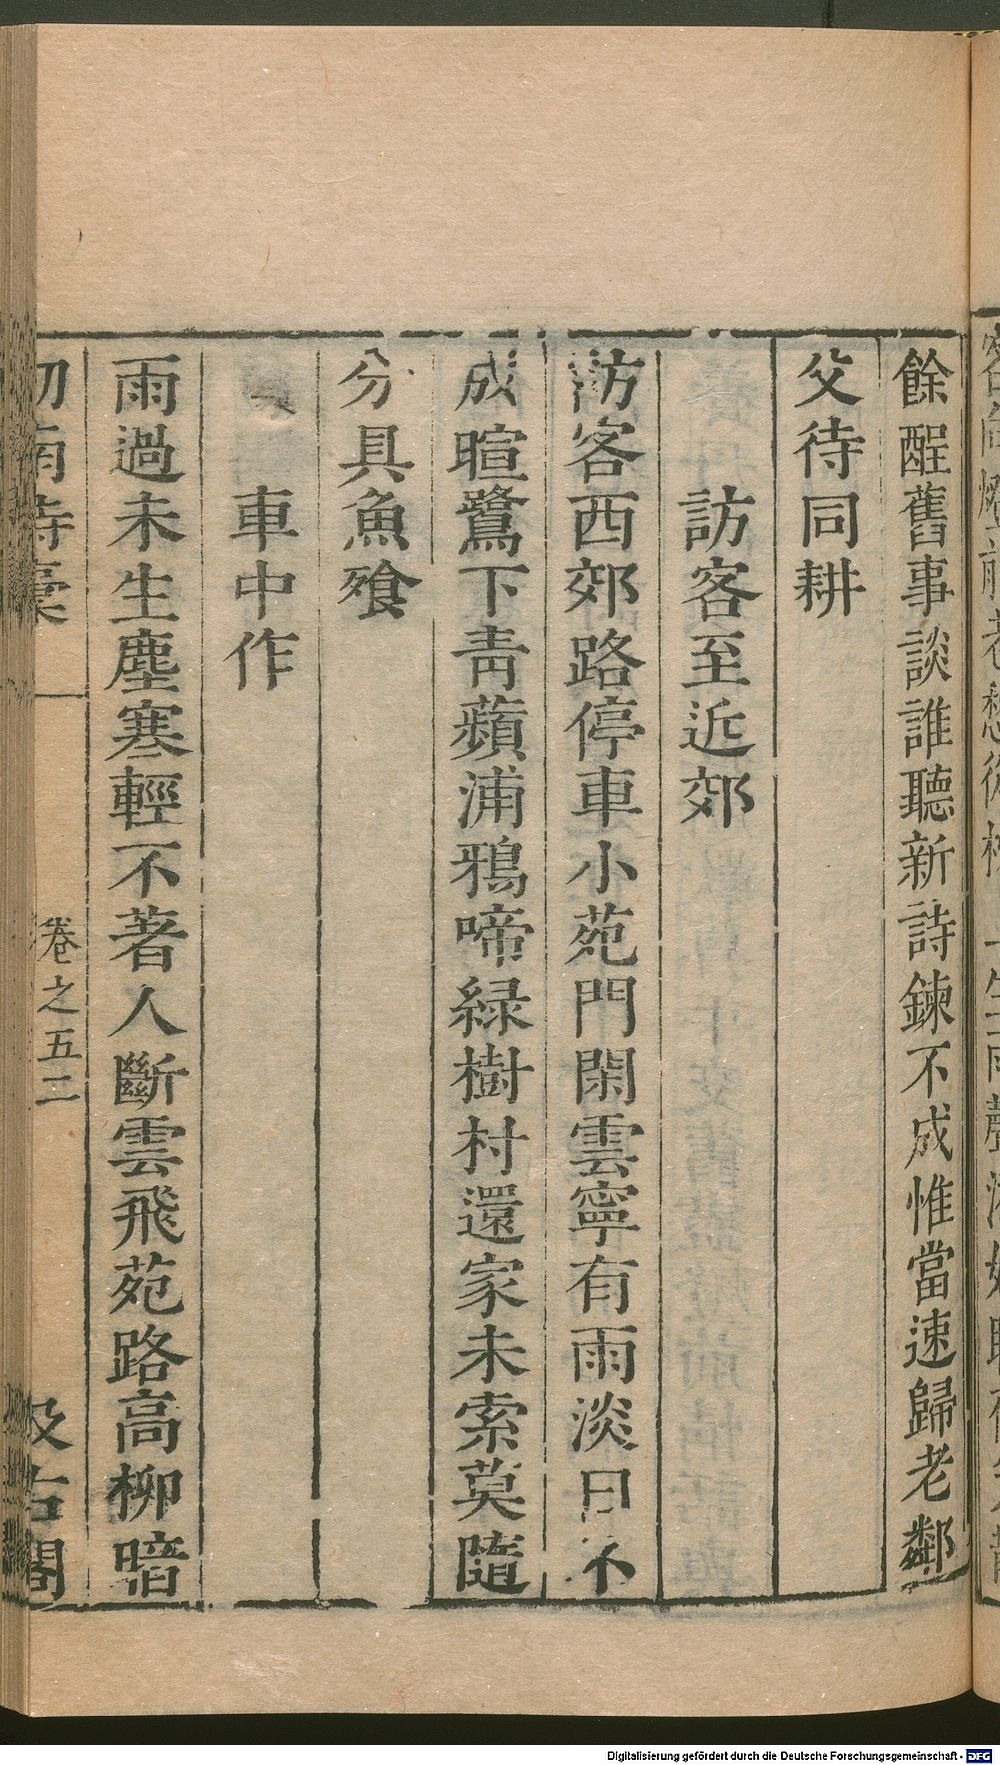 餘酲舊事談誰聽新詩鍊不成惟當速歸老鄰
父待同耕
訪客至近郊
訪客西郊路停車小苑門閑雲寧有雨淡日不
成暄鷺下靑蘋浦鴉啼緑樹村還家未索莫隨
分具魚飱
車中作
雨過未生塵寒輕不著人斷雲飛苑路高柳暗
劒南詩稾
卷之五二
汲古閣
Digitalisierung gefördert durch die Deutsche Forschungsgemeinschaft - DFG